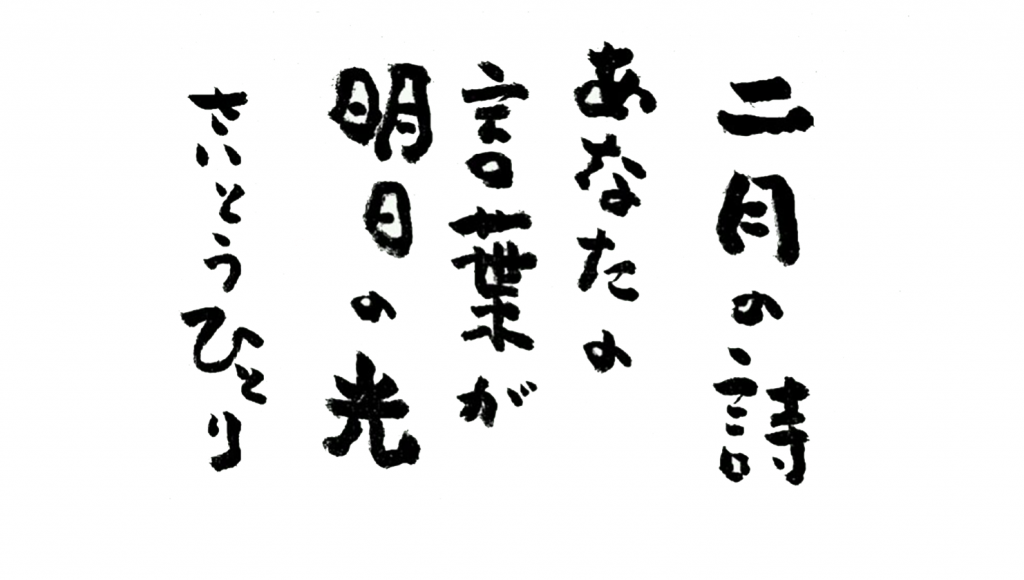 二月の詩
あなたの
言葉が
明日の光
さいとうひとり